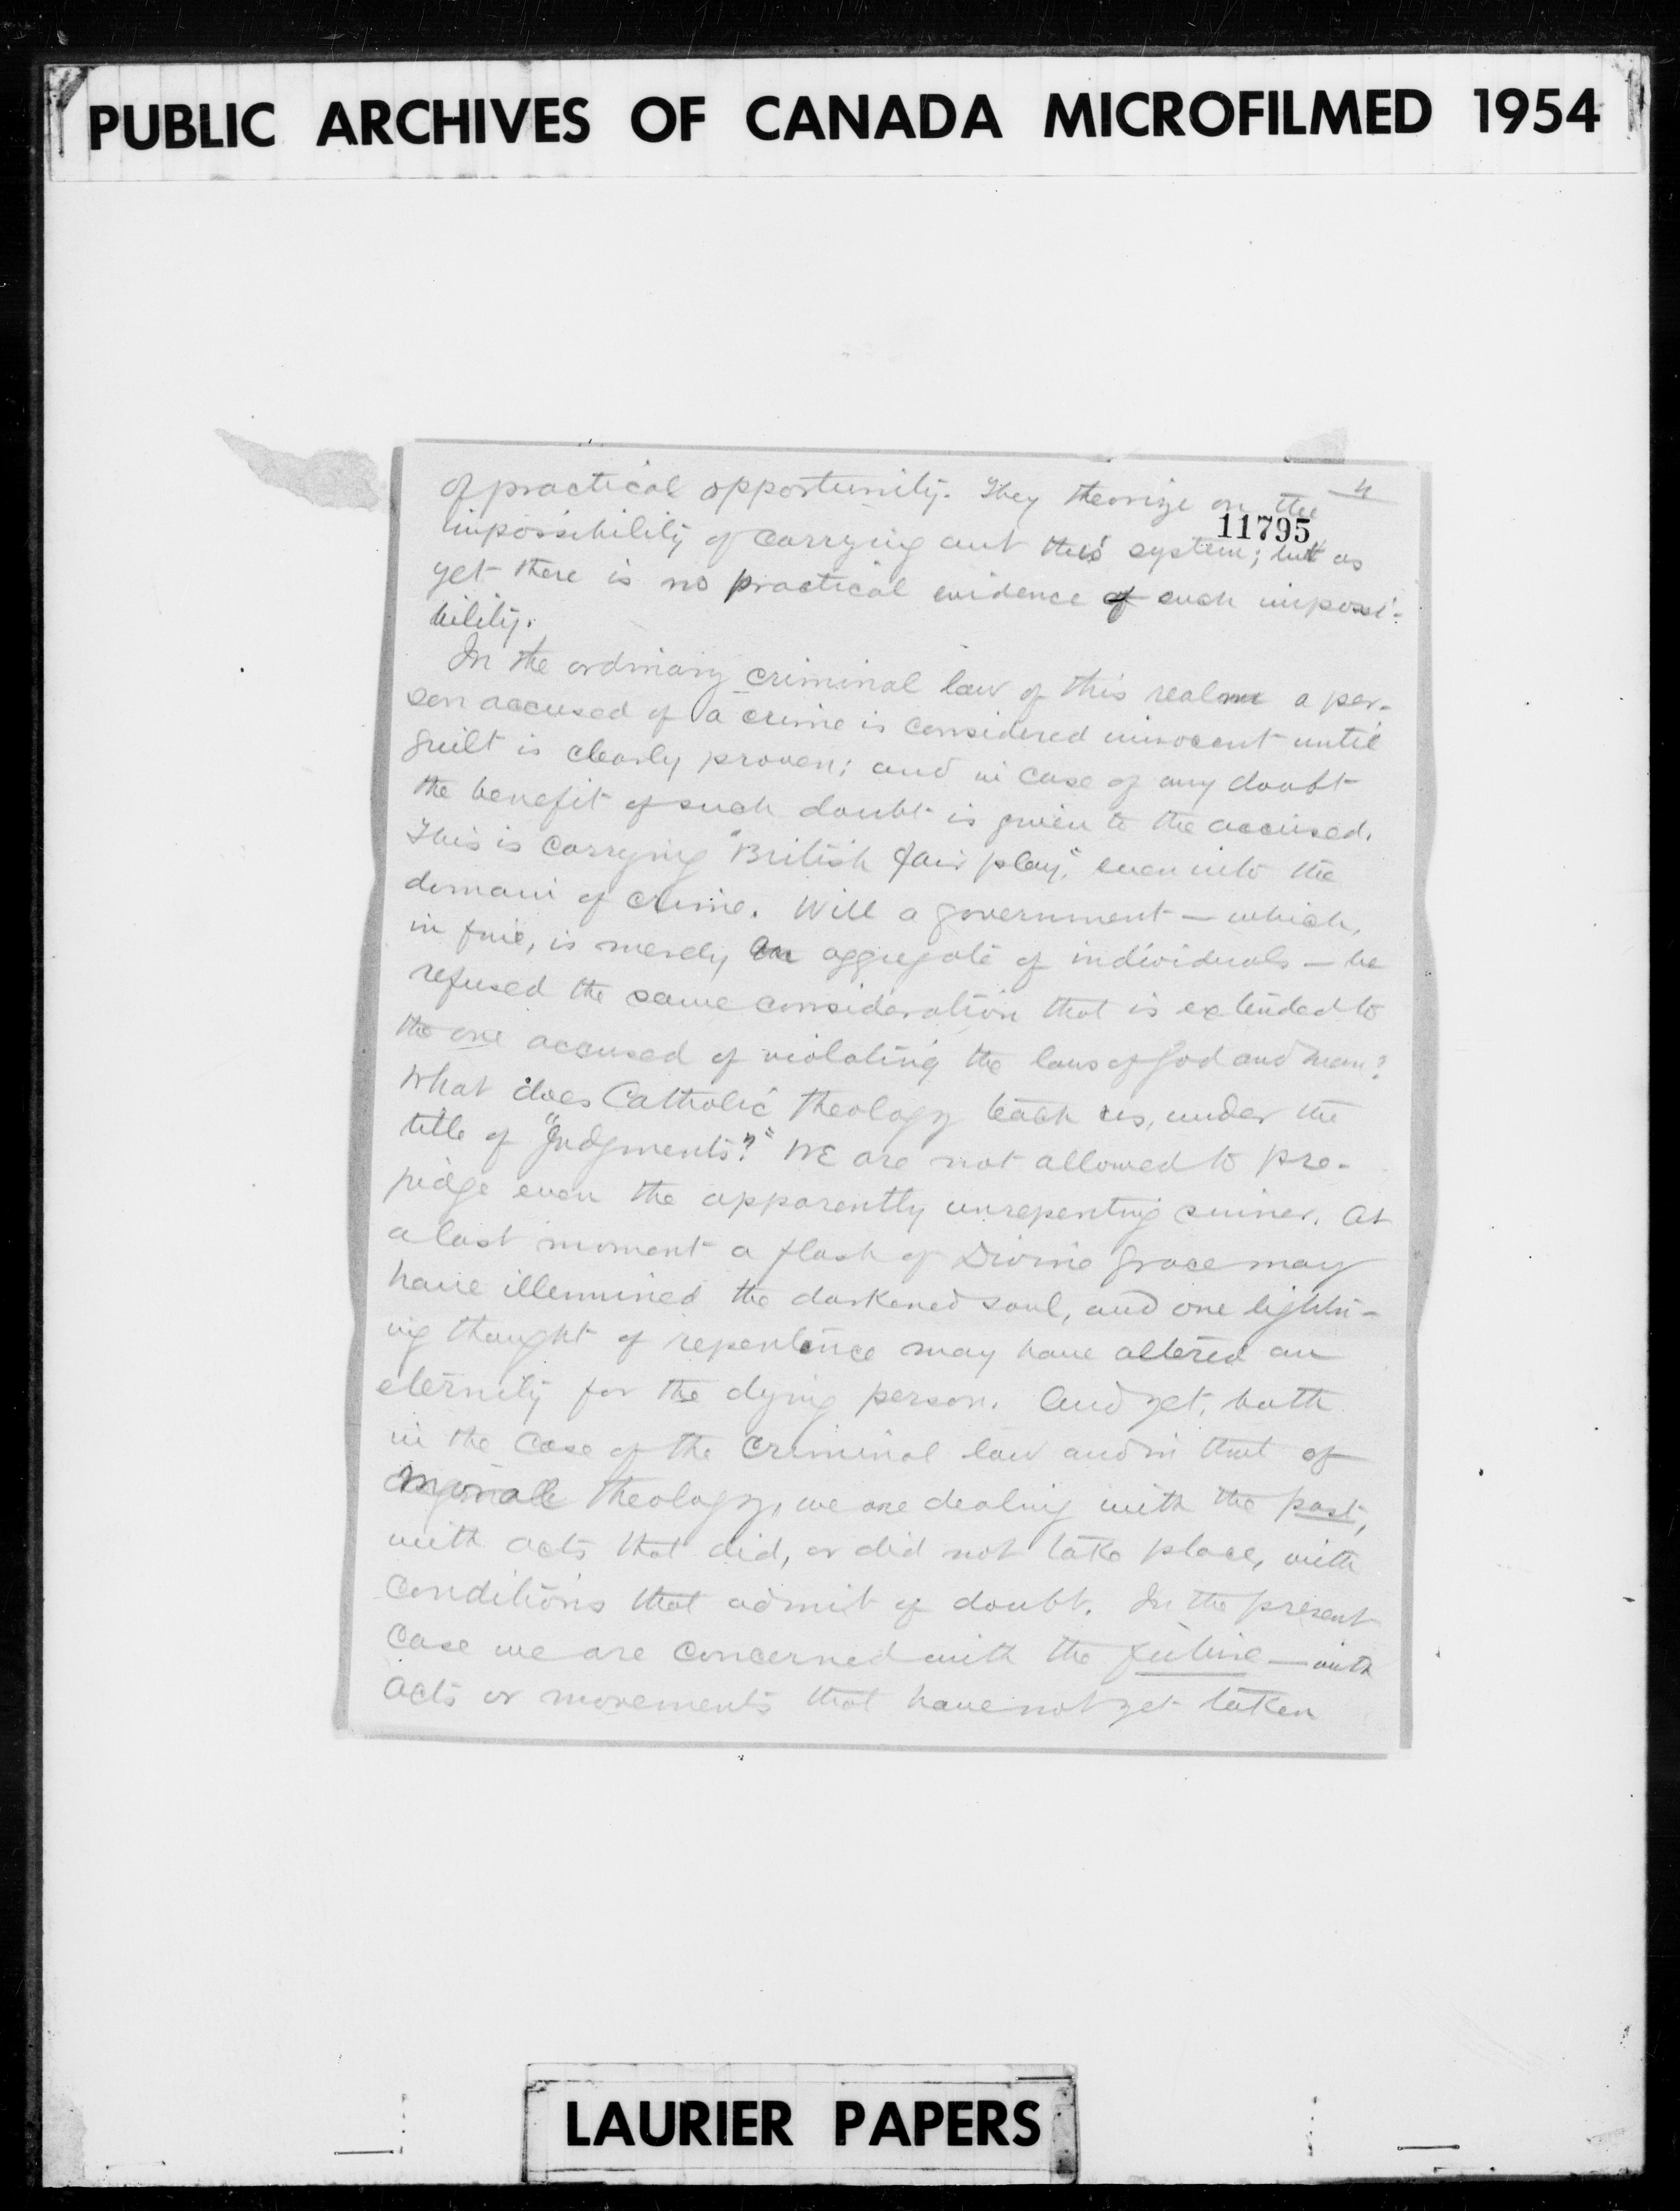 PUBLIC ARCHIVES OF CANADA MICROFILMED 1954
4
of practical opportunity. They theorize on the
11795
impossibility of carrying out this system; but as
yet there is no practical evidence of such impossi-
bility.
In the ordinary criminal law of this realm a per-
son accused of a crime is considered innocent until
guilt is clearly proven; and in case of any doubt
the benefit of such doubt is given to the accused.
This is carrying "British fair play," even into the
domain of crime. Will a government — which,
in fine, is merely an aggregate of individuals — be
refused the same consideration that is extended to
the one accused of violating the laws of God and man?
What does Catholic theology teach us, under the
title of "Judgments?" We are not allowed to pre-
judge even the apparently unrepenting sinner. At
a last moment a flash of Divine grace may
have illumined the darkened soul, and one lightn-
ing thought of repentence may have altered an
eternity for the dying person. And yet, both
in the case of the criminal law and in that of
theology, we are dealing with the past,
with acts that did, or did not take place, with
conditions that admit of doubt. In the present
case we are concerned with the future — with
acts or movements that have not yet taken
LAURIER PAPERS